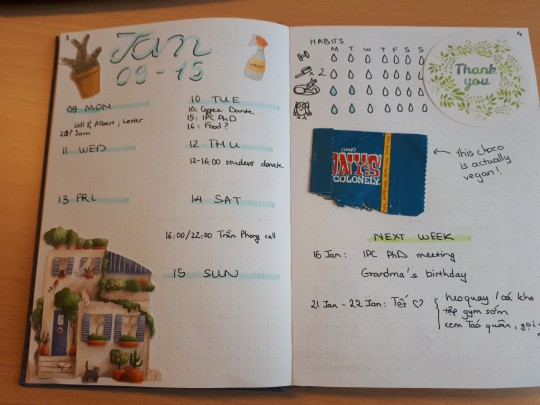 3
Jan
09 - 15
09 MON
Lidl & Albert ; Letter
Jam
10 TUE
10: Coffee Dante
15: IPC PhD
16: Food ?
11 WED
12 THU
12-16:00 student donate
13 FRI
14 SAT
16:00/22:00 Trần Phong call
15 SUN
4
HABITS
M T W T F S S
2
Thank
you
NY'S
COLONELY
this choco
is actually
vegan!
NEXT WEEK
16 Jan: IPC PhD meeting
Grandma's birthday
21 Jan - 22 Jan: Tết ♡
heo quay / cá kho
tập gym sớm
xem Táo quân, gọi